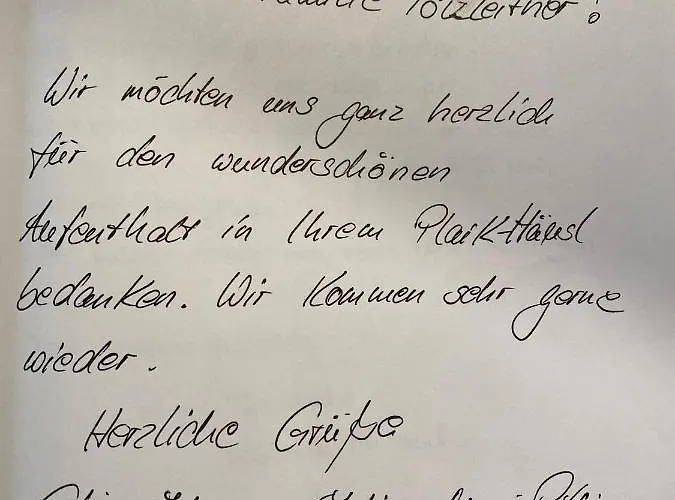 Familie Pölzleitner!
Wir möchten uns ganz herzlich
für den wunderschönen
Aufenthalt in Ihrem Plaik-Häusl
bedanken. Wir kommen sehr gerne
wieder.
Herzliche Grüße